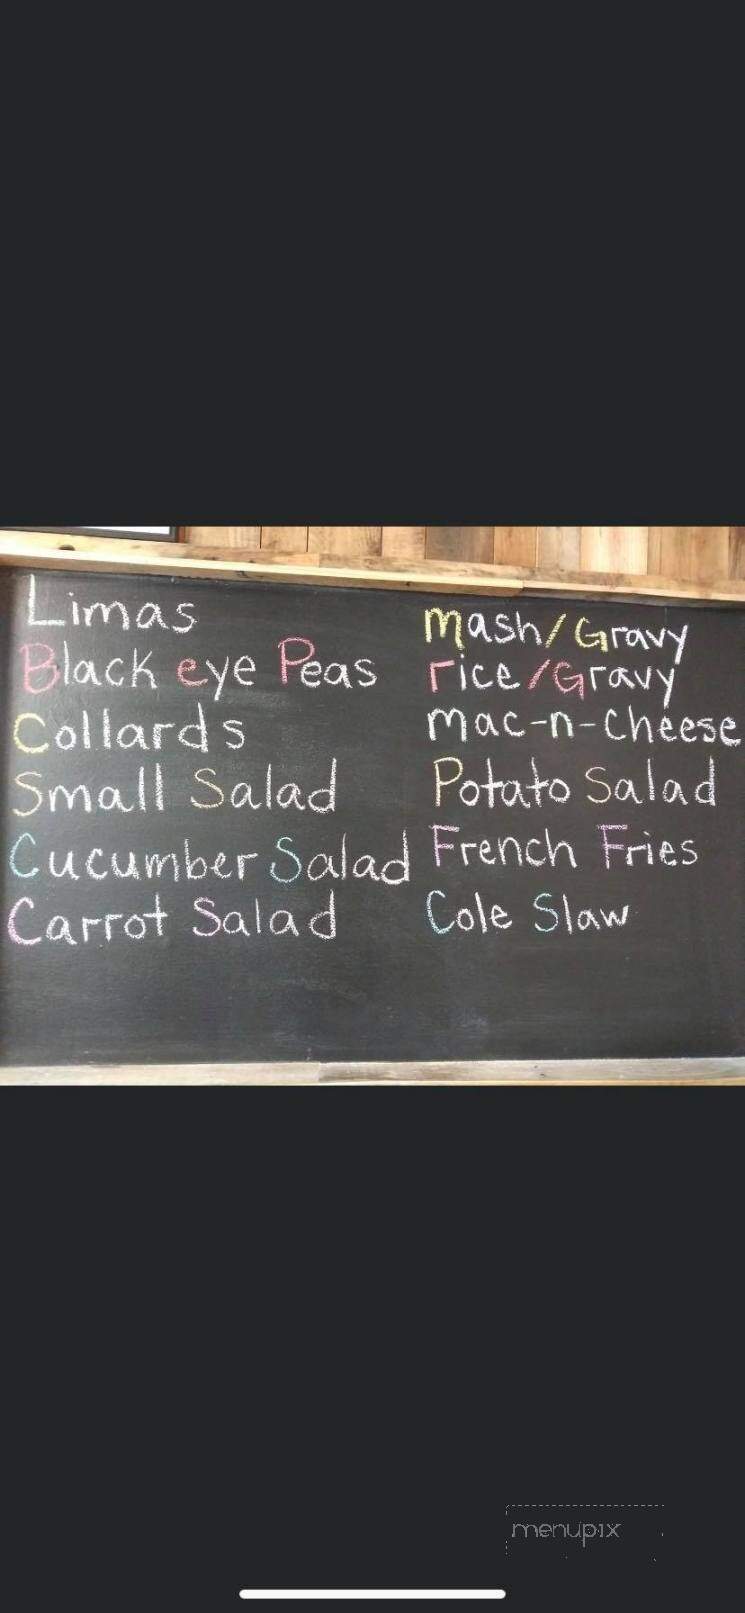 Limas
Black eye Peas
Collards
Small Salad
Cucumber Salad
Carrot Salad
Mash/Gravy
rice/Gravy
mac-n-cheese
Potato Salad
French Fries
Cole Slaw
menupix